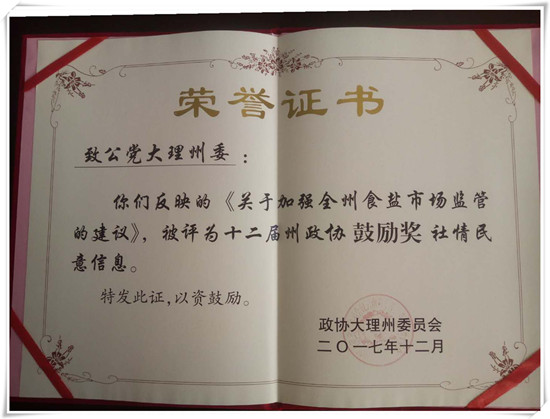 荣誉证书
致公党大理州委：
你们反映的《关于加强全州食盐市场监管
的建议》，被评为十二届州政协鼓励奖社情民
意信息。
特发此证，以资鼓励。
政协大理州委员会
二〇一七年十二月